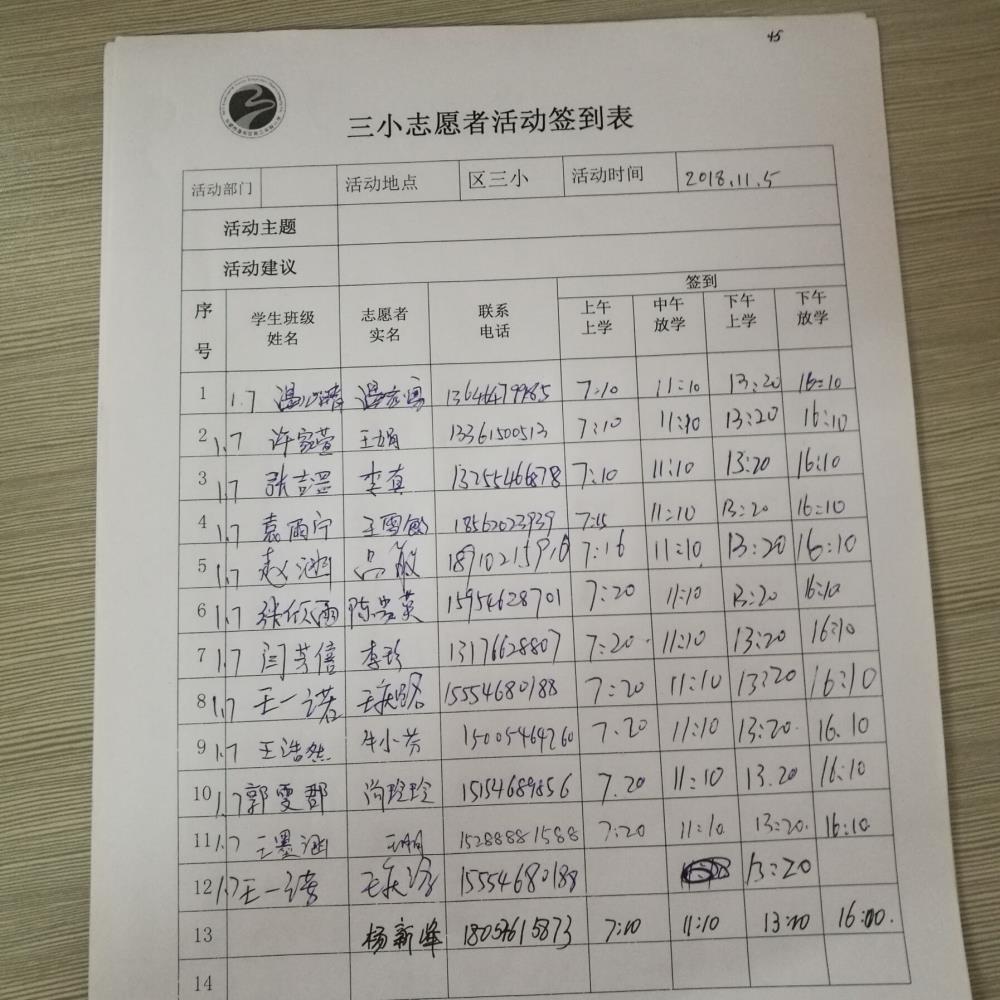 45
三小志愿者活动签到表
活动部门 活动地点 区三小 活动时间 2018.11.5
活动主题
活动建议
序号 学生班级姓名 志愿者实名 联系电话 签到
上午上学 中午放学 下午上学 下午放学
1 1.7 13646479985 7:10 11:10 13:20 16:10
2 1.7 许家萱 王娟 13361500513 7:10 11:10 13:20 16:10
3 1.7 李真 13255466878 7:10 11:10 13:20 16:10
4 1.7 袁雨宁 王雪敏 18562023939 7:15 11:10 13:20 16:10
5 1.7 赵涵 吕敏 18910215910 7:16 11:10 13:20 16:10
6 1.7 张欣雨 陈岩英 15954628701 7:20 11:10 13:20 16:10
7 1.7 闫芳信 李珍 13176628807 7:20 11:10 13:20 16:10
8 1.7 王一诺 15554680188 7:20 11:10 13:20 16:10
9 1.7 王浩然 牛小芳 15005464260 7.20 11:10 13:20. 16.10
10 1.7 郭雯郡 尚玲玲 15154689856 7.20 11:10 13.20 16:10
11 1.7 王墨涵 15288881588 7:20 11:10 13:20. 16:10
12 1.7 王一诺 15554680188 13:20
13 杨新峰 18054615873 7:10 11:10 13:20 16:00.
14